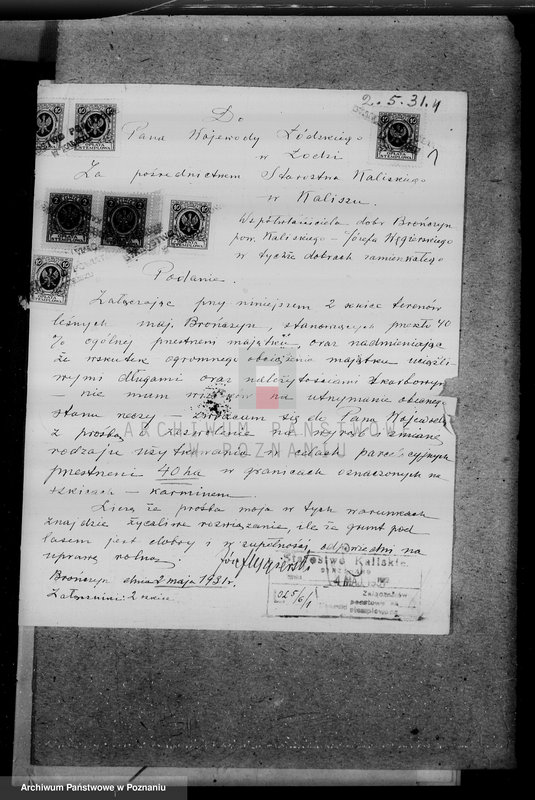 2.5.31.
Do
Pana Wojewody Łódzkiego
w Łodzi
Za pośrednictwem Starostwa Kaliskiego
w Kaliszu.
Współwłaściciela dóbr Brończyn
pow. Kaliskiego – Józefa Węgierskiego
w tychże dobrach zamieszkałego
Podanie.
Załączając przy niniejszem 2 szkice terenów
leśnych maj. Brończyn, stanowiących przeszło 40
% ogólnej przestrzeni majątku, oraz nadmieniając
że wskutek ogromnego obciążenia majątku uciążli
wymi długami oraz należytościami skarbowymi
– nie mam na utrzymanie obecnego
stanu rzeczy – zwracam się do Pana Wojewody
z prośbą o zezwolenie na wyrąb i zmianę
rodzaju użytkowania w celach parcelacyjnych
przestrzeni 40 ha w granicach oznaczonych na
szkicach – karminem.
Liczę że prośba moja w tych warunkach
znajdzie życzliwe rozwiązanie, ile że grunt pod
lasem jest dobry i w zupełności odpowiedni na
uprawę rolną.
Józef Węgierski
Brończyn dnia 2 maja 1931 r.
Załączniki: 2 szkice.
Starostwo Kaliskie
4 MAJ 1931
Załączników
OPŁATA STEMPLOWA
ARCHIWUM PAŃSTWOWE
W POZNANIU
Archiwum Państwowe w Poznaniu